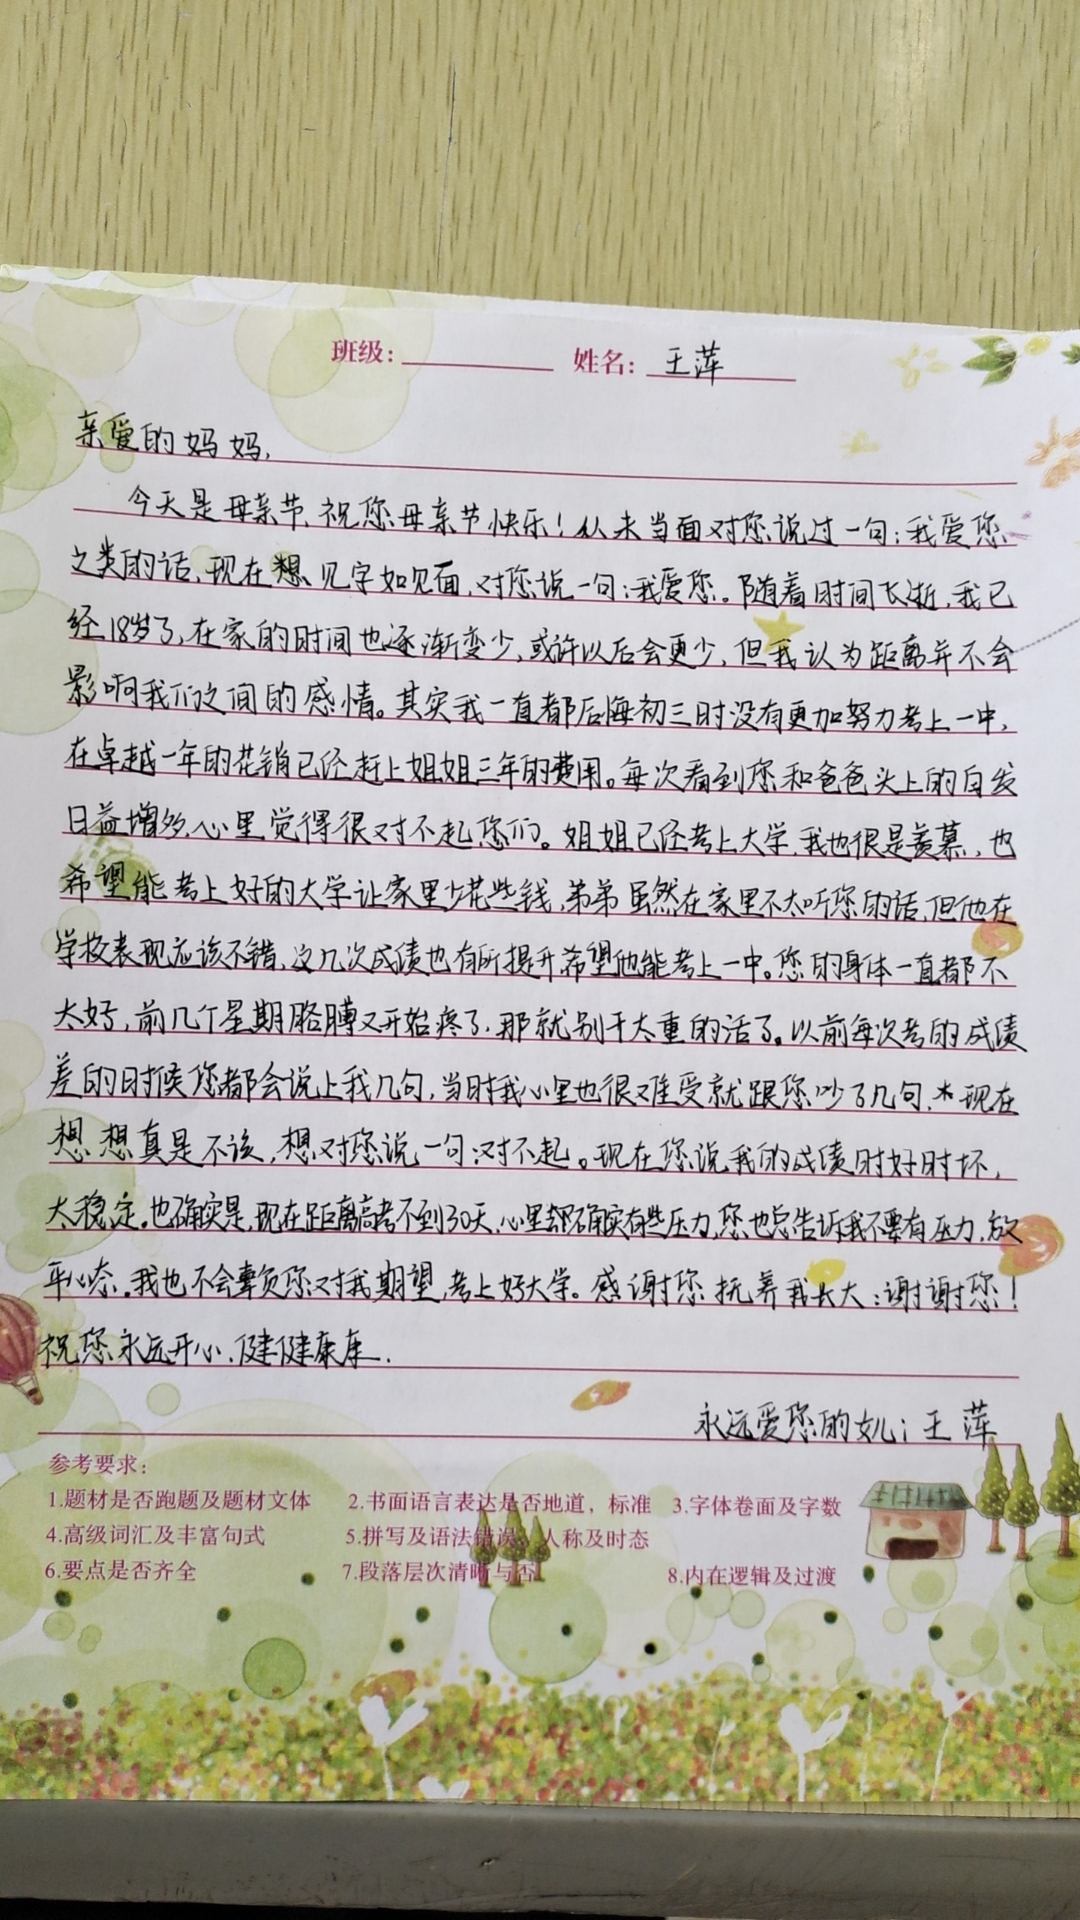 班级： 姓名：王萍
亲爱的妈妈，
今天是母亲节，祝您母亲节快乐！从未当面对您说过一句：我爱您
之类的话，现在想见字如见面，对您说一句：我爱您。随着时间长逝，我已
经18岁了，在家的时间也逐渐变少，或许以后会更少，但我认为距离并不会
影响我们之间的感情。其实我一直都后悔初三时没有更加努力考上一中，
在卓越一年的花销已经赶上姐姐三年的费用。每次看到您和爸爸头上的白发
日益增多，心里觉得很对不起您们。姐姐已经考上大学，我也很是羡慕，也
希望能考上好的大学让家里少花些钱，弟弟虽然在家里不太听您的话，但他在
学校表现应该不错，这几次成绩也有所提升，希望他能考上一中。您的身体一直都不
太好，前几个星期胳膊又开始疼了，那就别干太重的活了。以前每次考的成绩
差的时候您都会说上我几句，当时我心里也很难受就跟您吵了几句，现在
想想真是不该，想对您说一句：对不起。现在您说我的成绩时好时坏，
太稳定。也确实是，现在距离高考不到30天，心里都确实有些压力，您也总告诉我不要有压力，放
平心态。我也不会辜负您对我期望，考上好大学。感谢您抚养我长大：谢谢您！
祝您永远开心，健健康康．
永远爱您的女儿：王萍
参考要求：
1.题材是否跑题及题材文体 2.书面语言表达是否地道，标准 3.字体卷面及字数
4.高级词汇及丰富句式 5.拼写及语法错误、人称及时态
6.要点是否齐全 7.段落层次清晰与否 8.内在逻辑及过渡